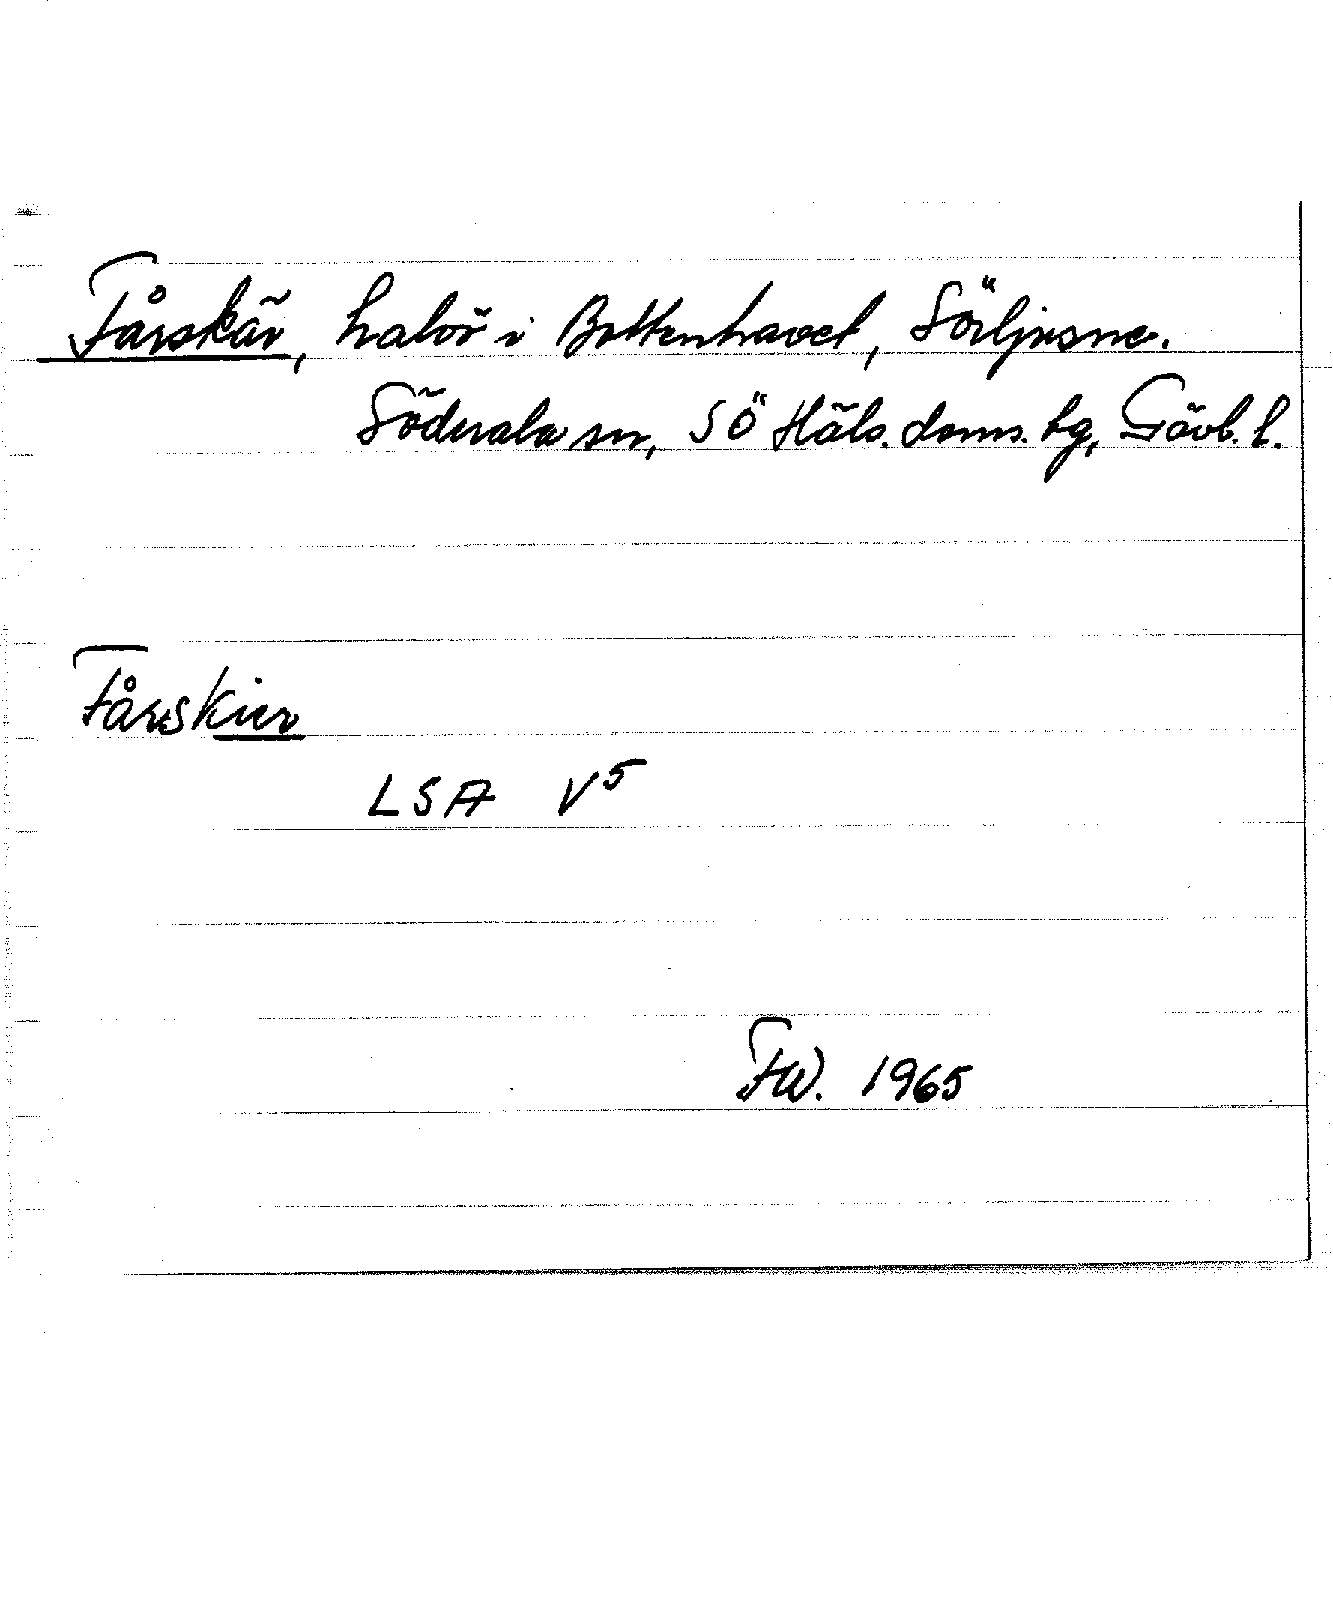 Fårskär, halvö i Bottenhavet, Sörljusne.
Söderala sn, SÖ Häls. doms. tg, Gävl. l.
Fårskier
LSA V5
FW. 1965